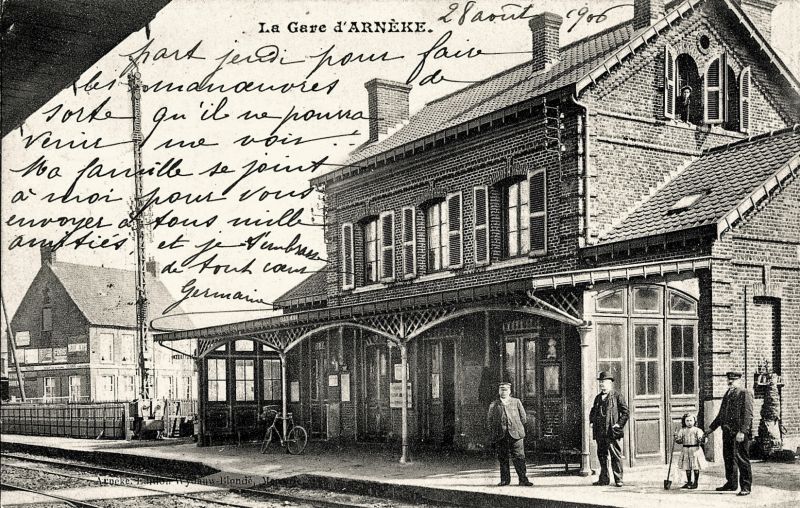 La Gare d'ARNÈKE.
28 août 1906
part jeudi pour faire
les manœuvres de
sorte qu'il ne pourra
venir me voir.
Ma famille se joint
à moi pour vous
envoyer à tous mille
amitiés et je t'embrasse
de tout cœur
Germaine
Arnèke. Edition Wydauw-Blondé,